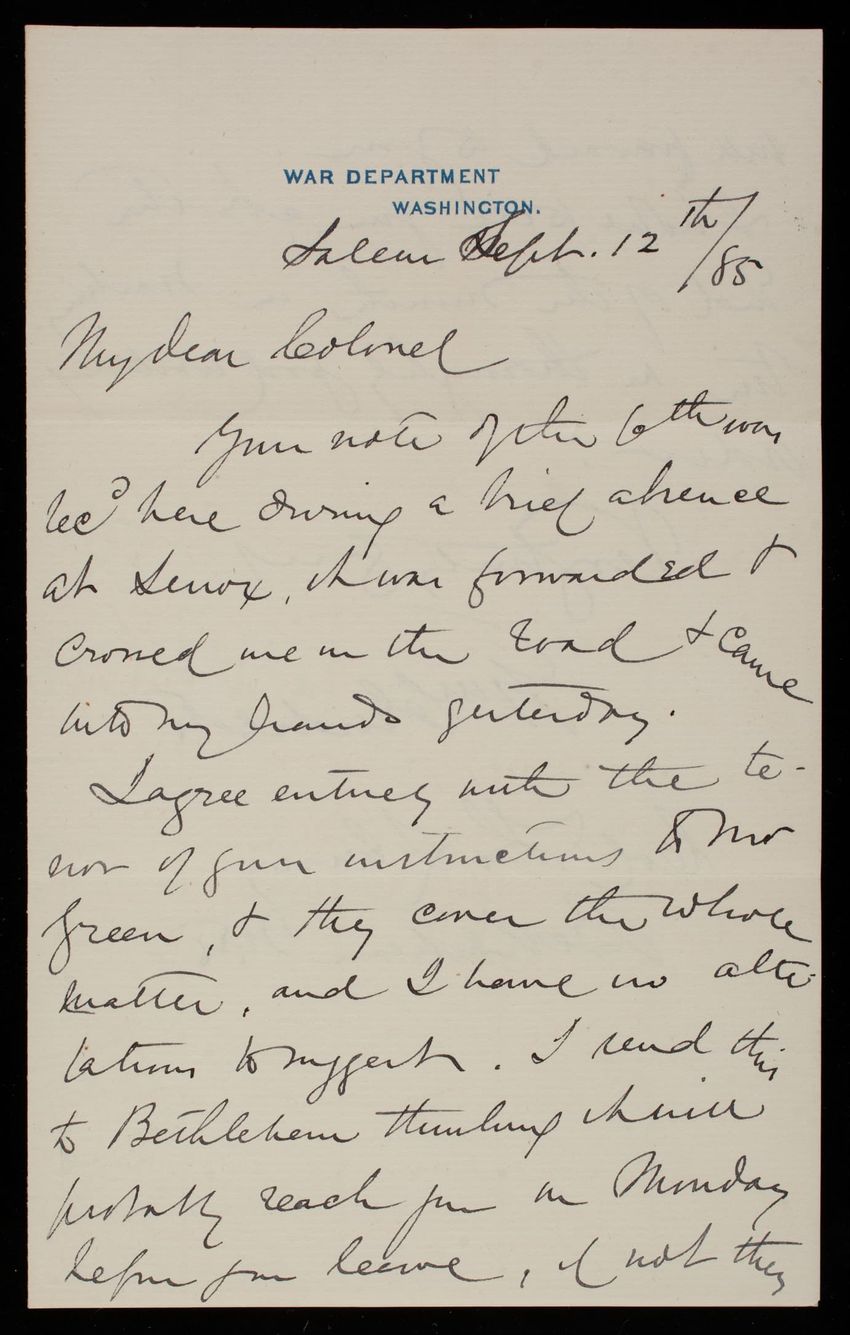 WAR DEPARTMENT
WASHINGTON.
Salem Sept. 12th/85
My dear Colonel
Your note of the 6th was
recd here during a brief absence
at Lenox, it was forwarded &
crossed me on the road & came
into my hands yesterday.
I agree entirely with the te-
nor of your instructions to Mr
Green, & they cover the whole
matter, and I have no alte-
rations to suggest. I send this
to Bethlehem thinking it will
probably reach you on Monday
before you leave, if not they